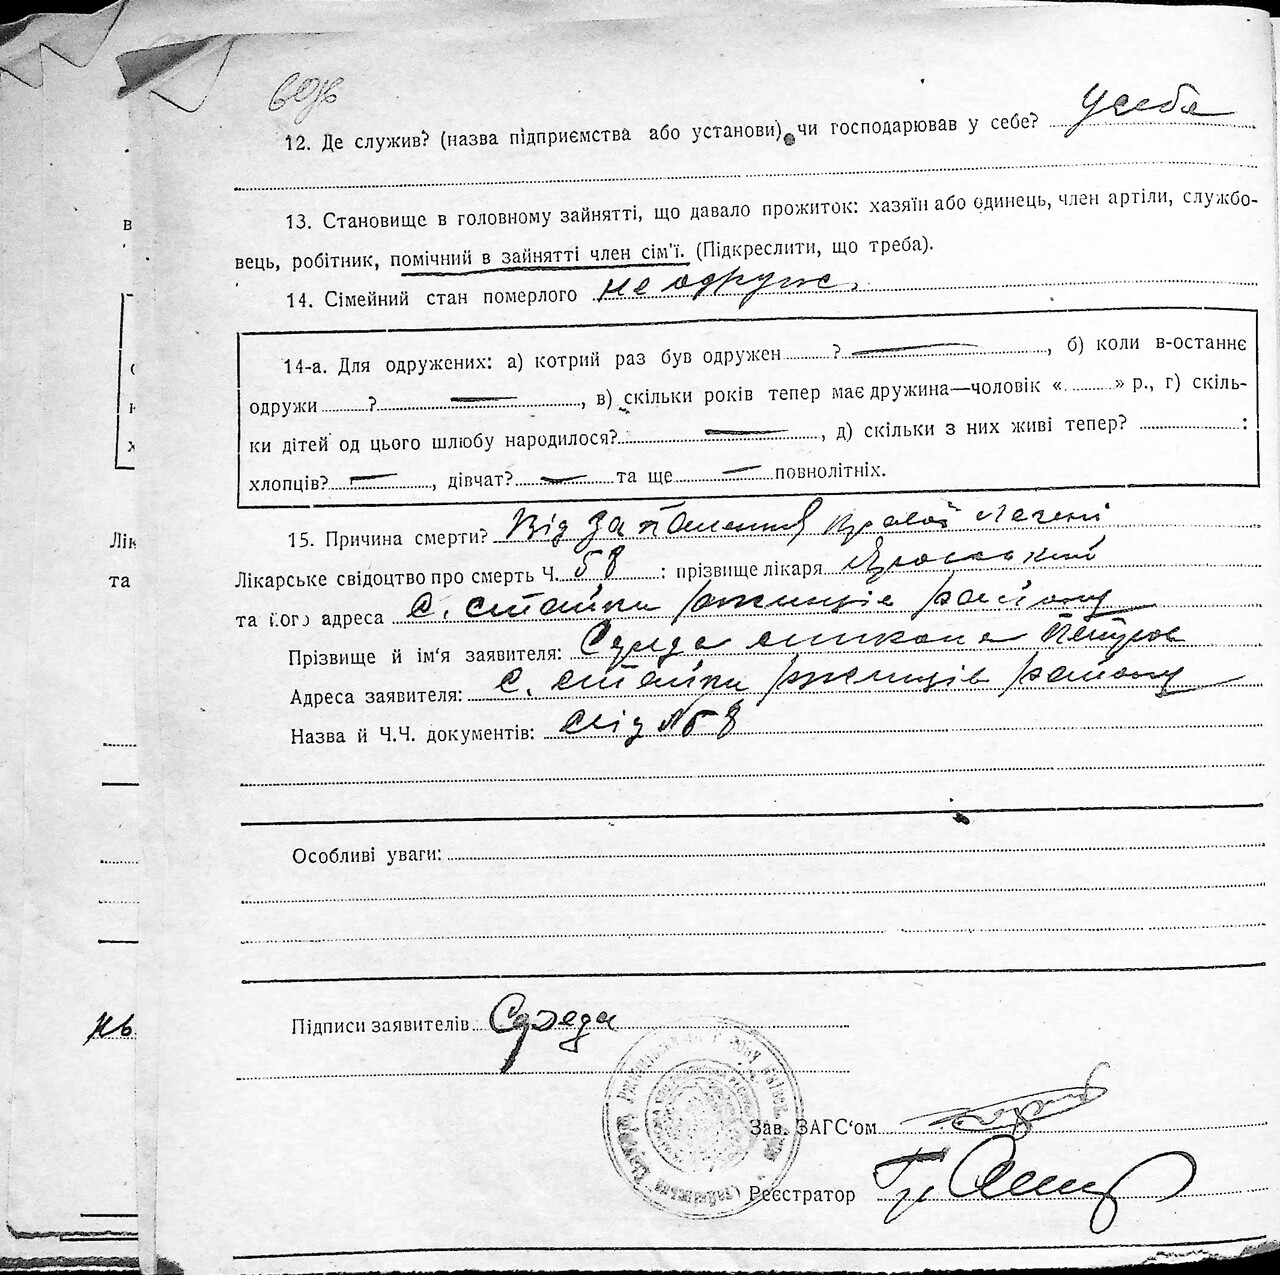 12. Де служив? (назва підприємства або установи), чи господарював у себе? у себе
13. Становище в головному зайнятті, що давало прожиток: хазяїн або одинець, член артіли, службо-
вець, робітник, помічний в зайнятті член сім'ї. (Підкреслити, що треба).
14. Сімейний стан померлого не одруж.
14-а. Для одружених: а) котрий раз був одружен ? —, б) коли в-останнє
одружи ? —, в) скільки років тепер має дружина—чоловік « » р., г) скіль-
ки дітей од цього шлюбу народилося? —, д) скільки з них живі тепер? :
хлопців? —, дівчат? — та ще — повнолітніх.
15. Причина смерти? Від запалення правої легені
Лікарське свідоцтво про смерть Ч. 58 : прізвище лікаря
та його адреса с. Стайки Ржищів району
Прізвище й ім'я заявителя: Середа
Адреса заявителя: с. Стайки Ржищів району
Назва й Ч.Ч. документів: 58
Особливі уваги:
Підписи заявителів Середа
Зав. ЗАГС'ом
Реєстратор
Лік
та